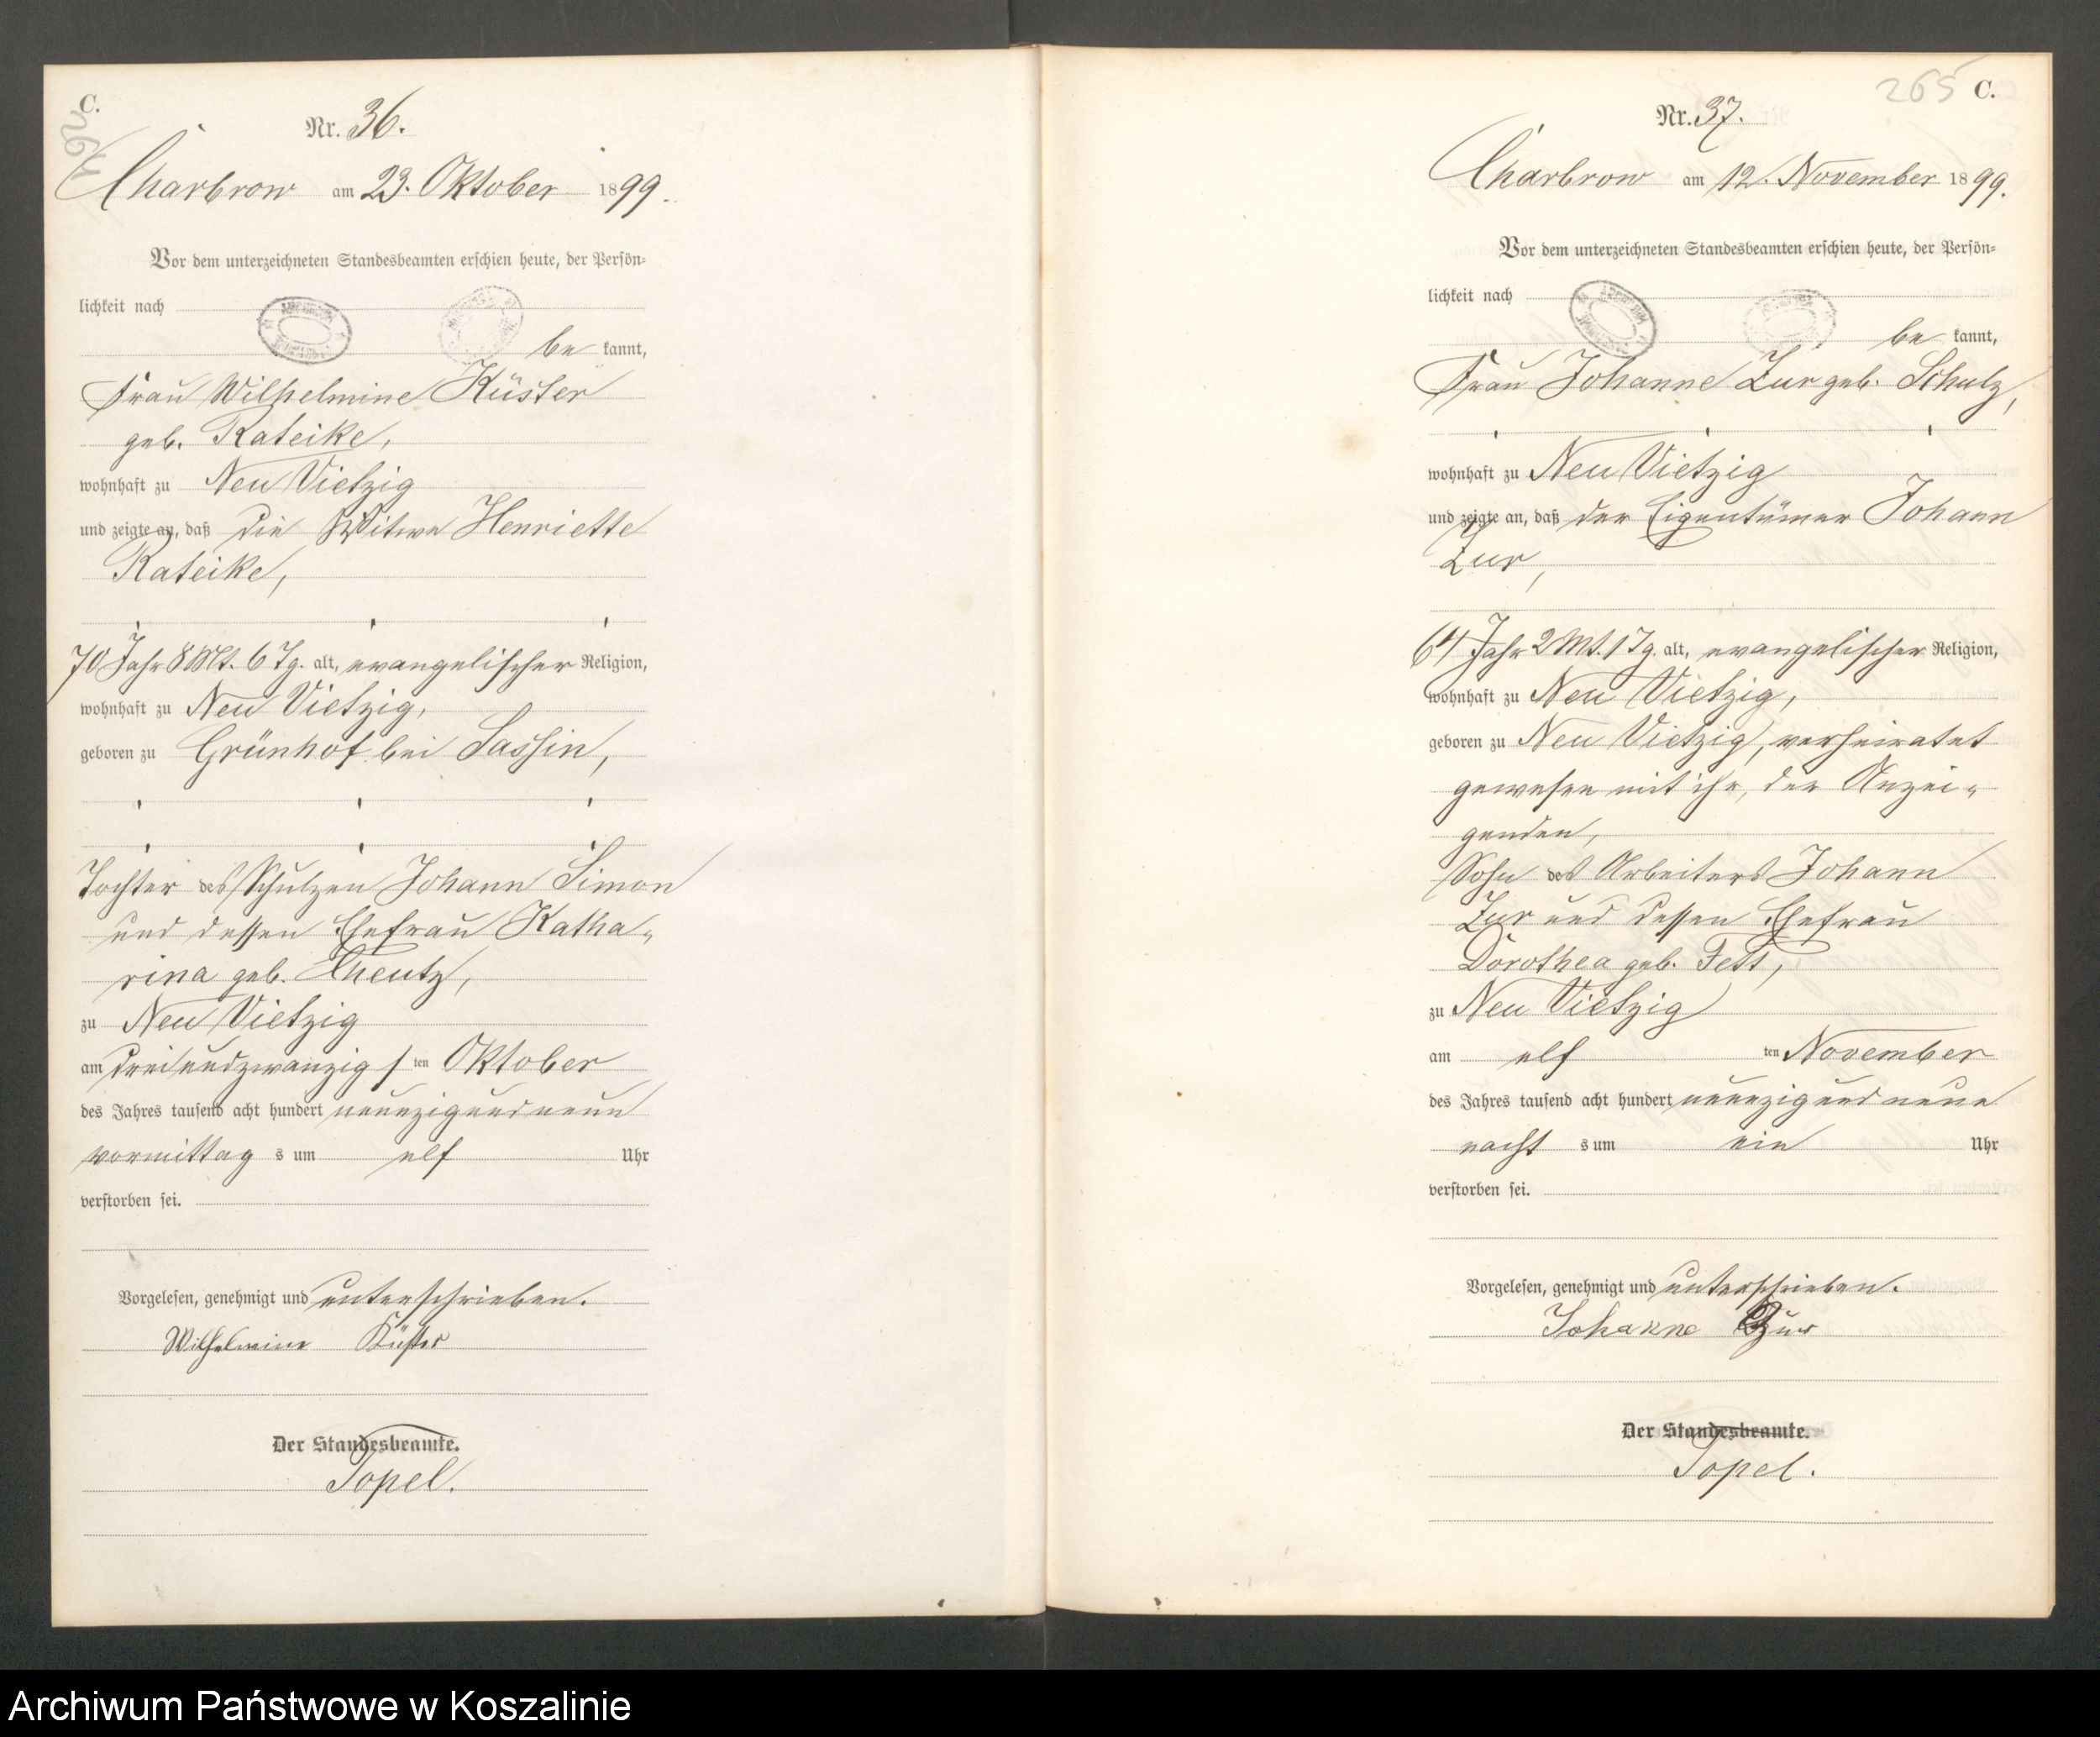 C.
Nr. 36.
Charbrow am 23. Oktober 1899.
Vor dem unterzeichneten Standesbeamten erschien heute, der Persön-
lichkeit nach
be kannt,
Frau Wilhelmine Küster
geb. Rateike,
wohnhaft zu Neu Vietzig
und zeigte an, daß die Witwe Henriette
Rateike,
70 Jahr 8 Mt. 6 Tg. alt, evangelischer Religion,
wohnhaft zu Neu Vietzig,
geboren zu Grünhof bei Sassin,
Tochter des Schulzen Johann Simon
und dessen Ehefrau Katha-
rina geb.
zu Neu Vietzig
am dreiundzwanzig s ten Oktober
des Jahres tausend acht hundert neunzigundneun
vormittag s um elf Uhr
verstorben sei.
Vorgelesen, genehmigt und unterschrieben.
Wilhelmine Küster
Der Standesbeamte.
Topel.
265 C.
Nr. 37.
Charbrow am 12. November 1899.
Vor dem unterzeichneten Standesbeamten erschien heute, der Persön-
lichkeit nach
be kannt,
Frau Johanne Zur geb. Schulz,
wohnhaft zu Neu Vietzig
und zeigte an, daß der Eigentümer Johann
Zur,
64 Jahr 2 Mt. 1 Tg. alt, evangelischer Religion,
wohnhaft zu Neu Vietzig,
geboren zu Neu Vietzig, verheiratet
gewesen mit ihr, der Anzei-
genden,
Sohn des Arbeiters Johann
Zur und dessen Ehefrau
Dorothea geb. Fett,
zu Neu Vietzig
am elf ten November
des Jahres tausend acht hundert neunzigundneun
nacht s um ein Uhr
verstorben sei.
Vorgelesen, genehmigt und unterschrieben.
Johanne Zur
Der Standesbeamte.
Topel.
Archiwum Państwowe w Koszalinie